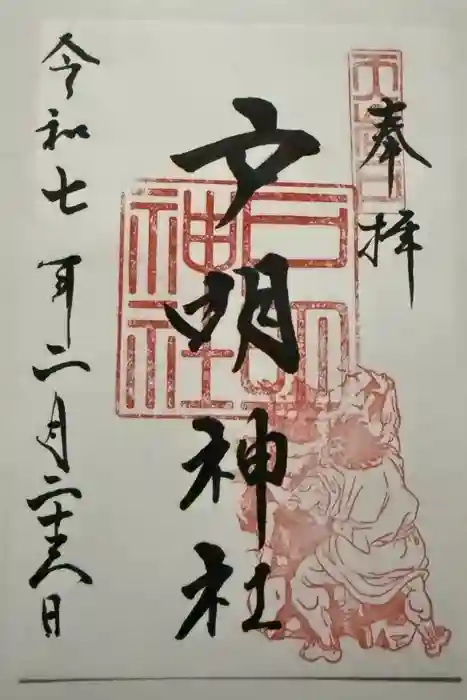 奉拝
戸明神社
令和七年二月二十六日
戸明神社